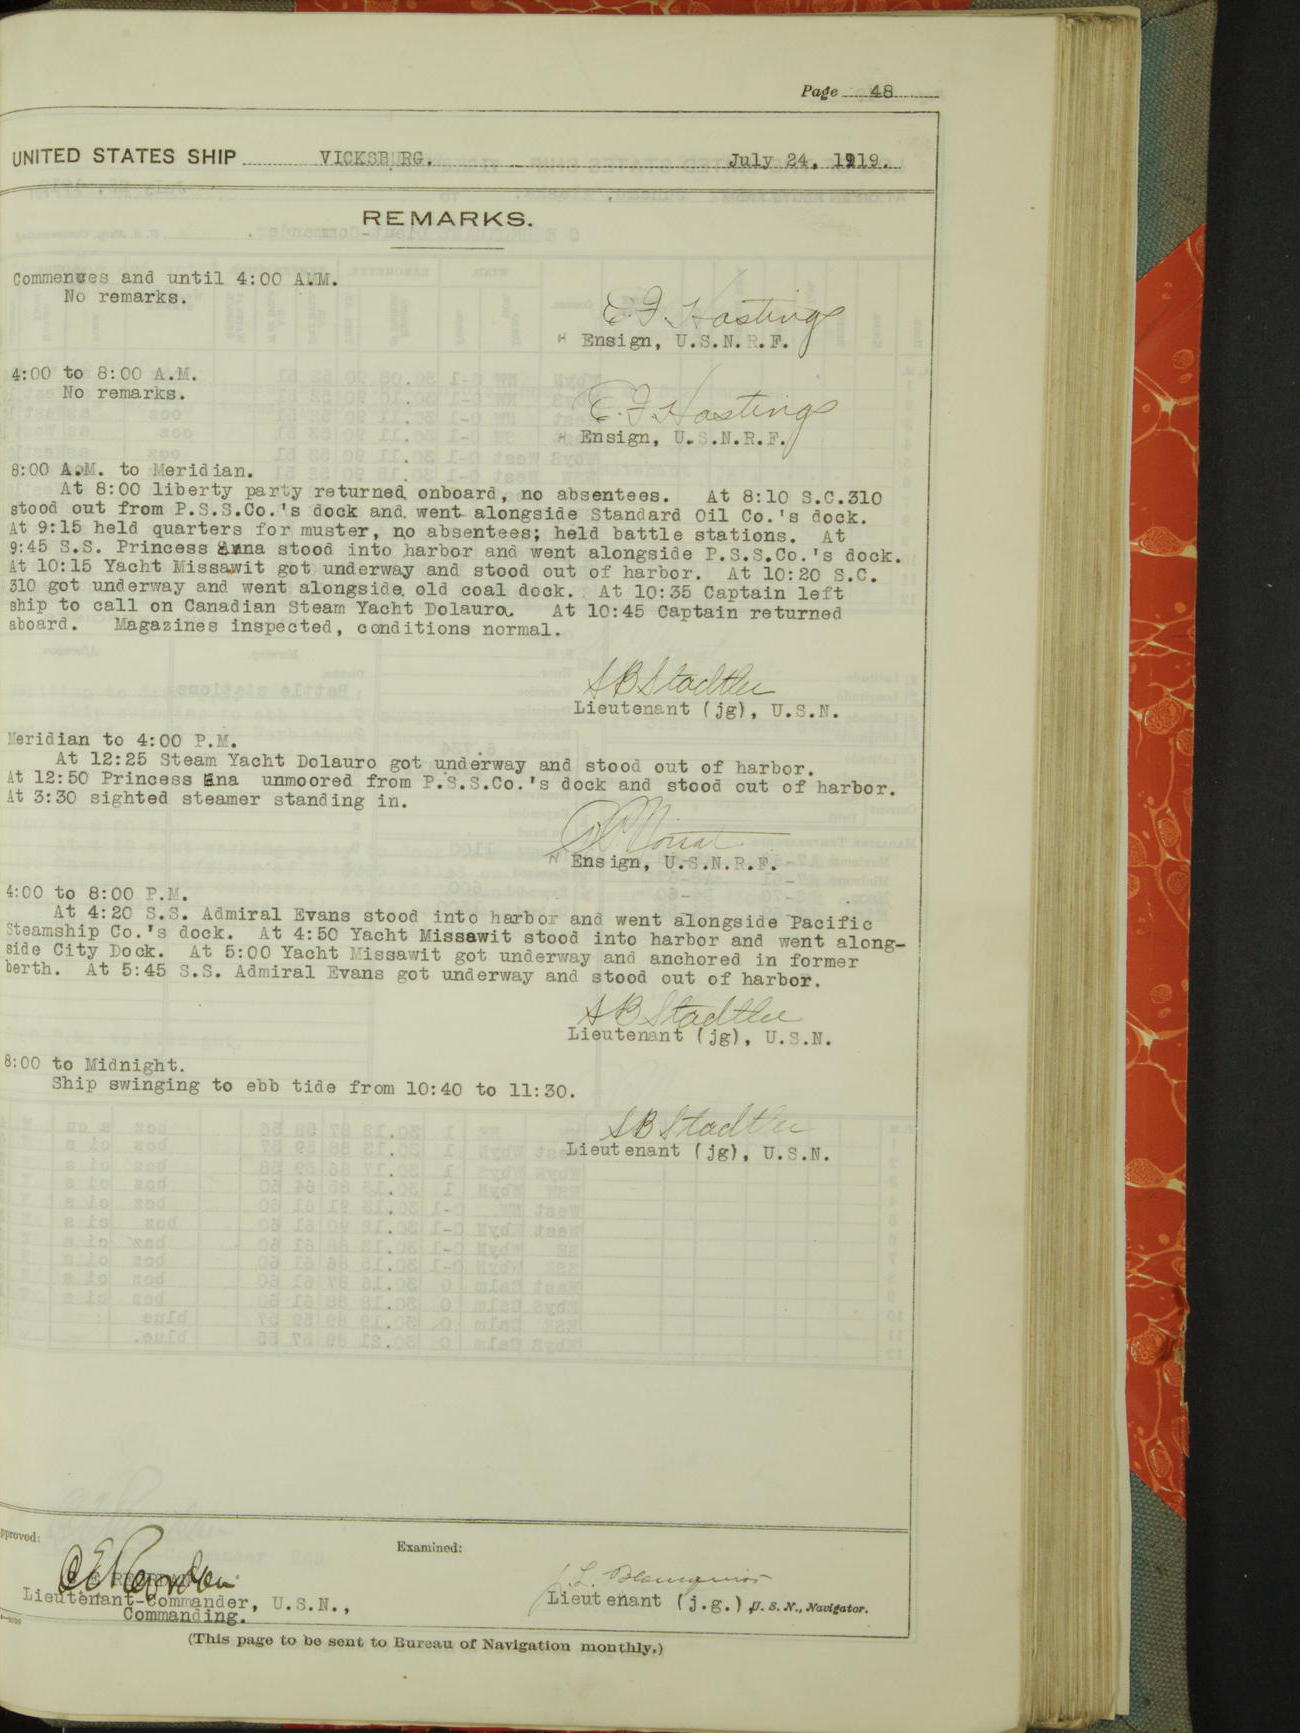 Page 48
UNITED STATES SHIP VICKSBURG. July 24, 1919.
REMARKS.
Commences and until 4:00 A.M.
No remarks.
E.F. Hastings
Ensign, U.S.N.R.F.
4:00 to 8:00 A.M.
No remarks.
E.F. Hastings
Ensign, U.S.N.R.F.
8:00 A.M. to Meridian.
At 8:00 liberty party returned onboard, no absentees. At 8:10 S.C.310
stood out from P.S.S.Co.'s dock and went alongside Standard Oil Co.'s dock.
At 9:15 held quarters for muster, no absentees; held battle stations. At
9:45 S.S. Princess Anna stood into harbor and went alongside P.S.S.Co.'s dock.
At 10:15 Yacht Missawit got underway and stood out of harbor. At 10:20 S.C.
310 got underway and went alongside old coal dock. At 10:35 Captain left
ship to call on Canadian Steam Yacht Dolaura. At 10:45 Captain returned
aboard. Magazines inspected, conditions normal.
S B Stadtler
Lieutenant (jg), U.S.N.
Meridian to 4:00 P.M.
At 12:25 Steam Yacht Dolauro got underway and stood out of harbor.
At 12:50 Princess Ena unmoored from P.S.S.Co.'s dock and stood out of harbor.
At 3:30 sighted steamer standing in.
Ensign, U.S.N.R.F.
4:00 to 8:00 P.M.
At 4:20 S.S. Admiral Evans stood into harbor and went alongside Pacific
Steamship Co.'s dock. At 4:50 Yacht Missawit stood into harbor and went along-
side City Dock. At 5:00 Yacht Missawit got underway and anchored in former
berth. At 5:45 S.S. Admiral Evans got underway and stood out of harbor.
S B Stadtler
Lieutenant (jg), U.S.N.
8:00 to Midnight.
Ship swinging to ebb tide from 10:40 to 11:30.
S B Stadtler
Lieutenant (jg), U.S.N.
pproved:
Examined:
Lieutenant-Commander, U.S.N.,
Commanding.
Lieutenant (j.g.), U. S. N., Navigator.
(This page to be sent to Bureau of Navigation monthly.)